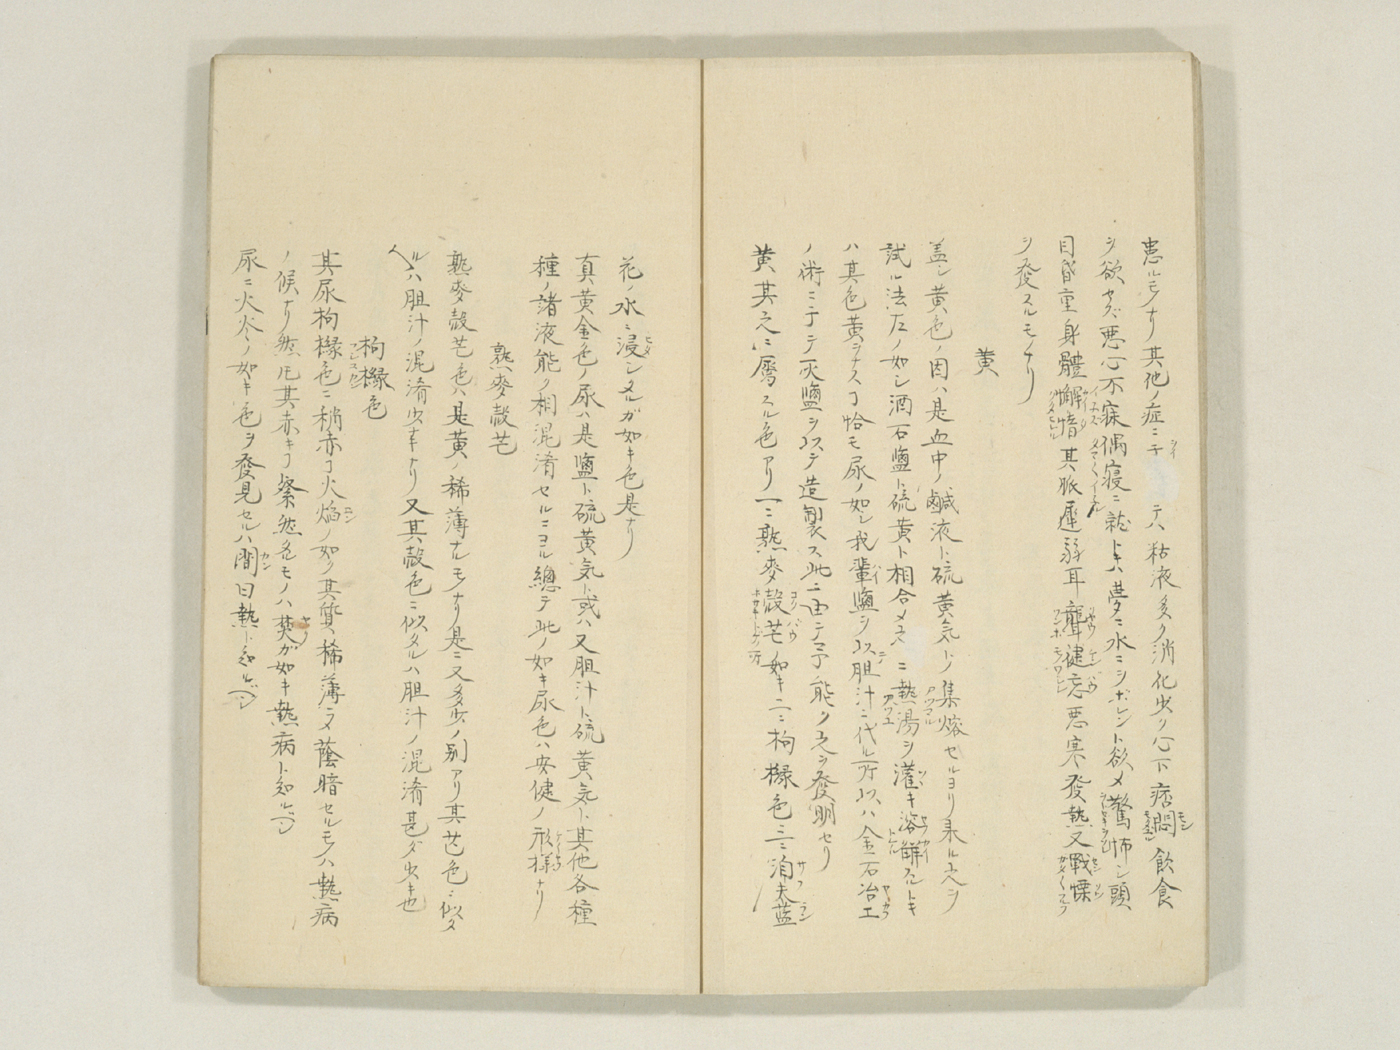 患ルモノナリ其他ノ症ニテハ粘液多ク消化少ク心下痞悶飲食
ヲ欲セズ悪心不寐偶寝ニ就トキハ夢ニ水ニシボレント欲メ驚怖シ頭
目昏重身體懈惰其脈遲弱耳聾健忘悪寒発熱又戰慄
ヲ發スルモノナリ
黄
蓋シ黄色ノ因ハ是血中ノ鹹液ト硫黄気トノ集熔セルヨリ来ル之ヲ
試ル法左ノ如シ酒石鹽ト硫黄ト相合メ之ニ熱湯ヲ灌キ溶解スルトキ
ハ其色黄ヲナスヿ恰モ尿ノ如シ我輩鹽ヲ以テ胆汁ニ代ル所以ハ金石冶工
ノ術ニ于テ灰鹽ヲ以テ造製ス此ニ由テ予能ク之ヲ發明セリ
黄其之ニ屬スル色アリ一ニ熟麥殻芒ノ如キ二ニ枸櫞色三ニ洎夫藍
花ノ水ニ浸シタルガ如キ色是ナリ
真黄金色ノ尿ハ是鹽ト硫黄気ト或ハ又胆汁ト硫黄気ト其他各種
種ノ諸液能ク相混淆セルニヨル總テ此ノ如キ尿色ハ安健ノ形様ナリ
熟麥殻芒
熟麥殻芒色ハ是黄ノ稀薄ナルモノナリ是ニ又多少ノ別アリ其芒色ニ似タ
ルハ胆汁ノ混淆少ナキナリ又其殻色ニ似タルハ胆汁ノ混淆甚ダ少キ也
枸櫞色
其尿枸櫞色ニ稍赤キヿ火焔ノ如ク其質稀薄ニ〆蔭暗セルモノハ熱病
ノ候ナリ然圧其赤キヿ粲然タルモノハ莢ガ如キ熱病ト知ルベシ
尿ニ火炎ノ如キ色ヲ發見セルハ間日熱ト知ルベシ